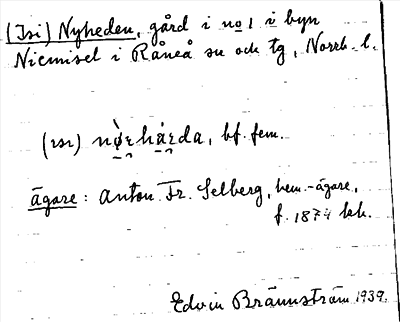 (Isi) Nyheden, gård i no 1 i byn
Niemisel i Råneå sn och tg, Norrb. l.
bf. fem.
ägare: Anton Fr. Selberg, hem.-ägare,
f. 1874
Edvin Brännström 1939.